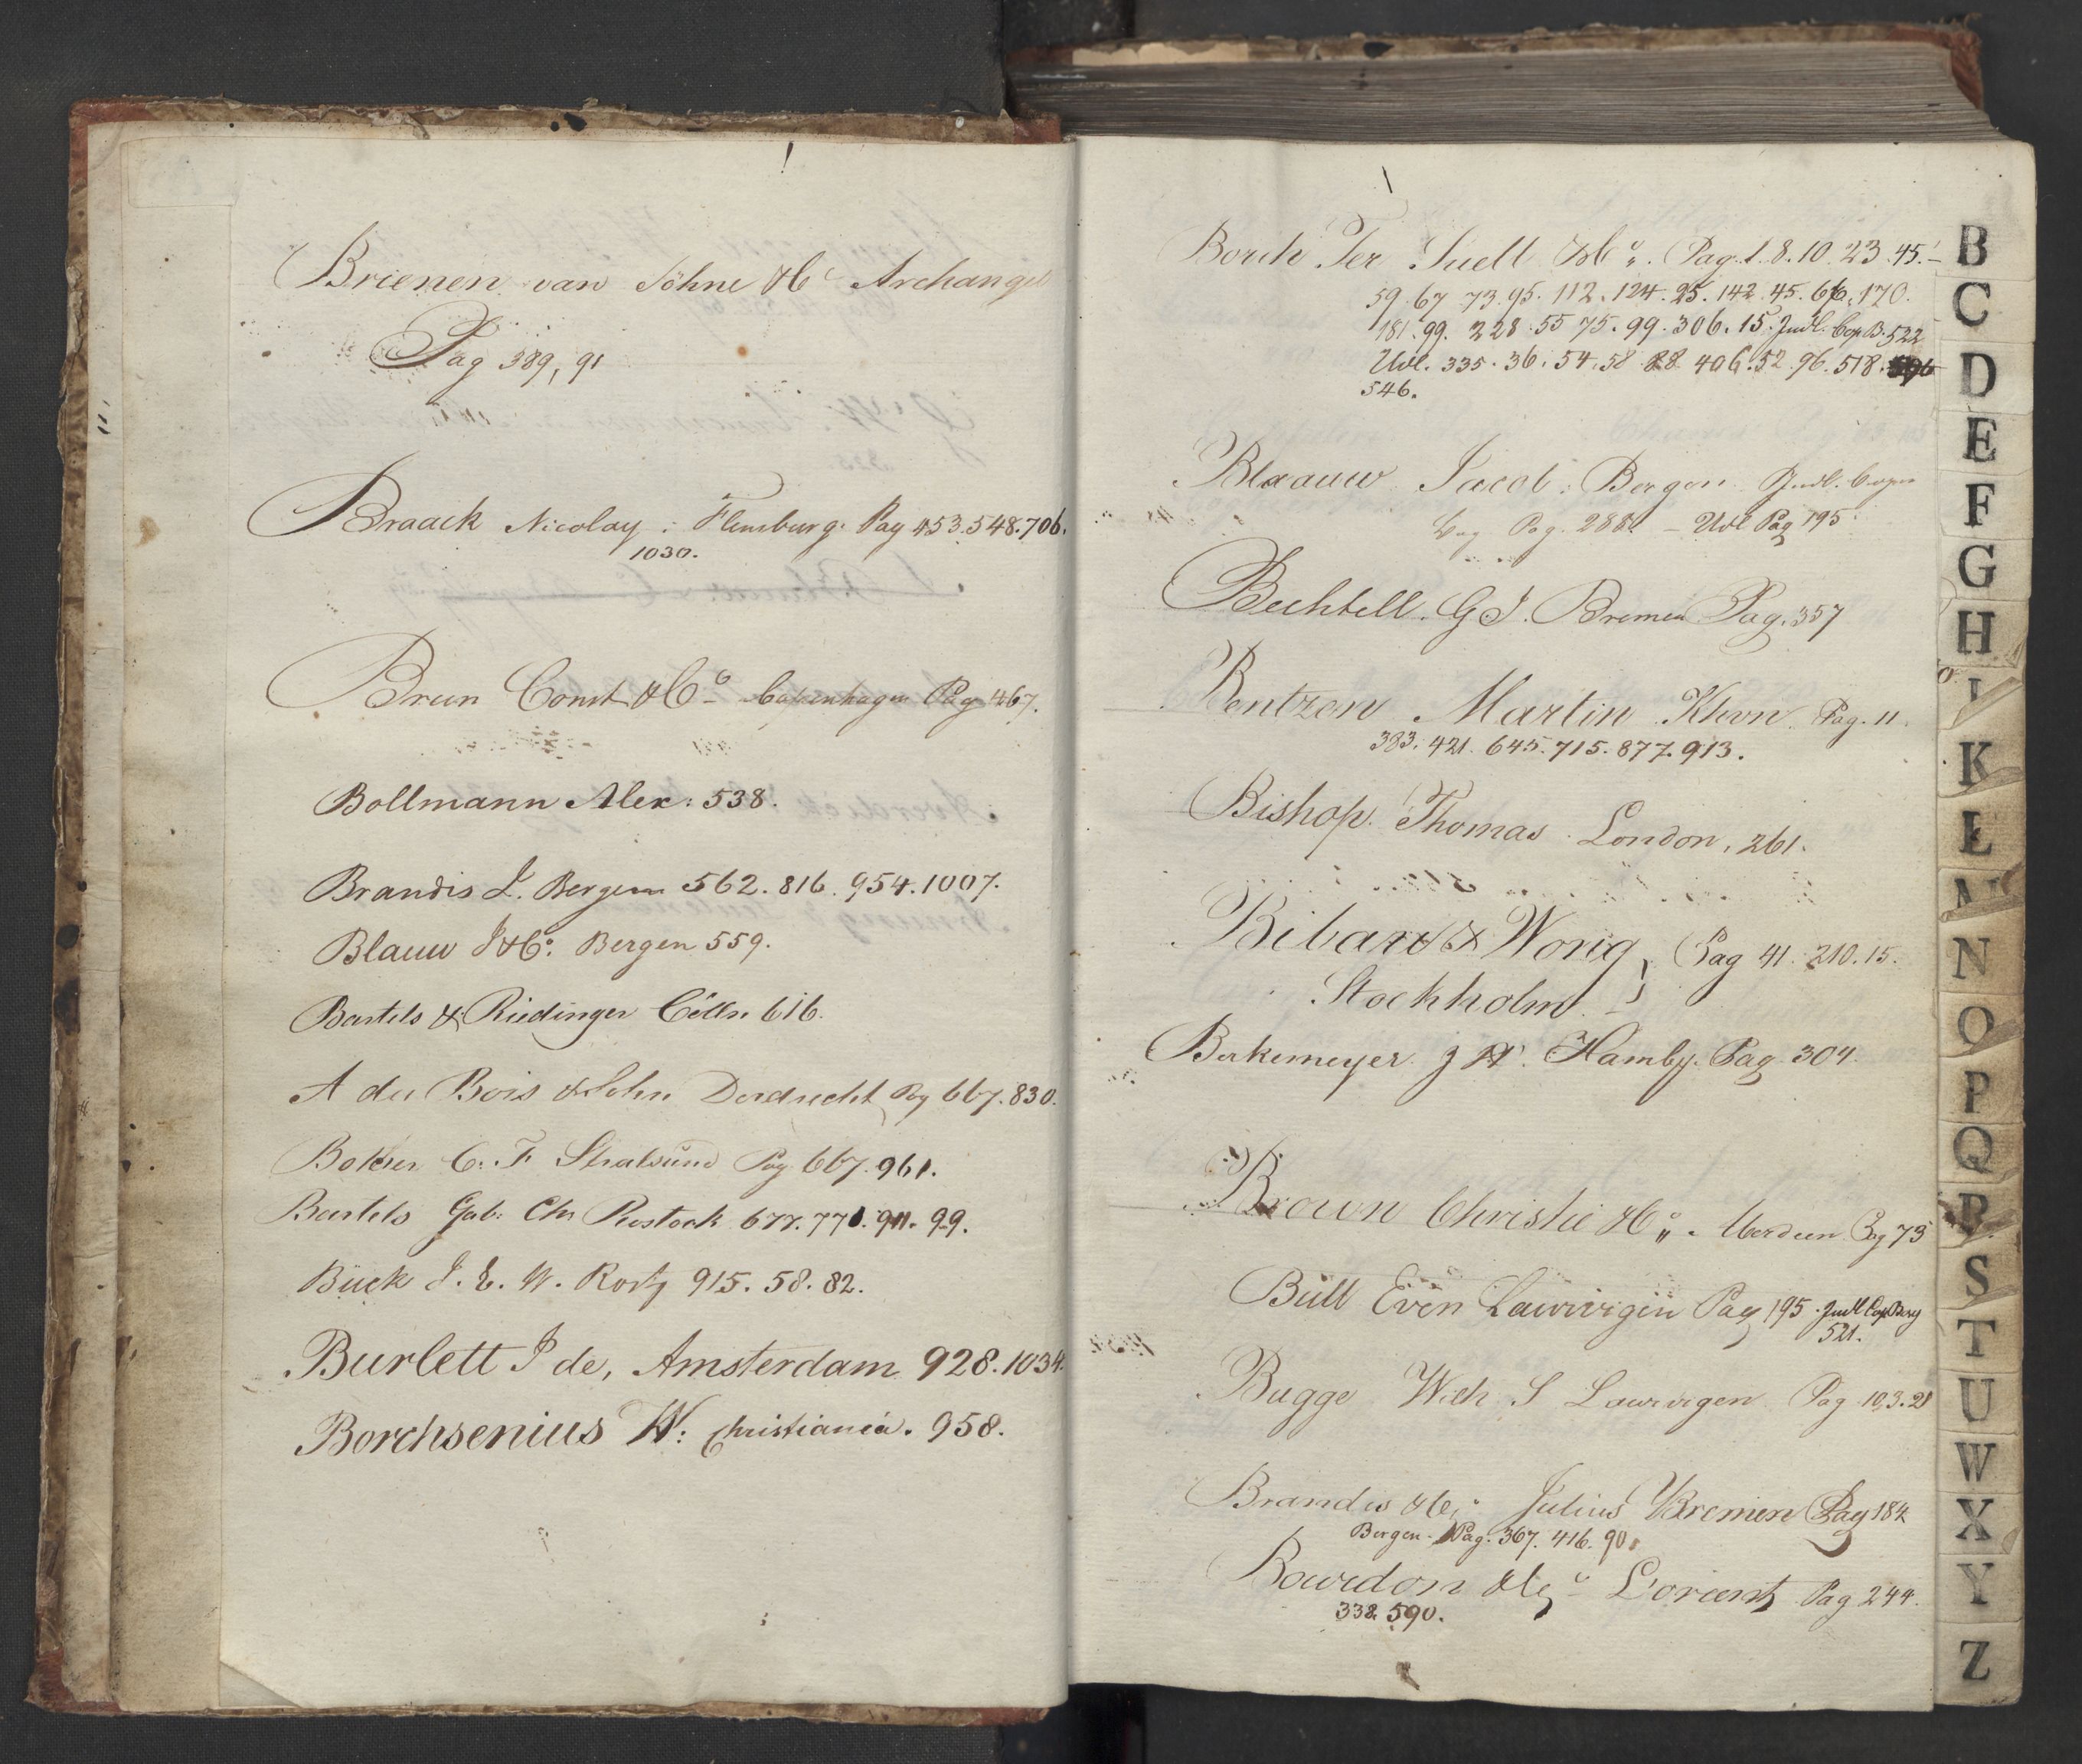 Brienen van Söhne & Co Archangel
Pag 389, 91
Braack Nicolay : Flensburg: Pag 453.548.706.
1030.
Brun Const & Co Copenhagen Pag 467.
Bollmann Alex: 538.
Brandis J. Bergen 562. 816. 954. 1007.
Blauw J & C: Bergen 559.
Bartels & Riedinger Cölln 616.
A du Bois & Sohn Dordrecht Pag 667. 830.
C. F. Stralsund Pag 667. 961.
Bartels Gab: Chr Rostock 677. 771. 911. 99.
Bück J. E. W. 915. 58. 82.
Burlett J de, Amsterdam 928. 1034.
Borchsenius W: Christiania. 958.
Borch Ter Suell & Co. Pag. 1. 8. 10. 23. 45.
59. 67 73. 95. 112. 124. 25. 142 45. 66. 170.
181. 99. 228. 55 75. 99. 306. 15. Indl. Cop B. 522
Udl. 335. 36. 54. 58 88 406. 52. 96. 518.
546.
Blaauw Jacob : Bergen Indl. Copie
Pag. 288. – Udl Pag 195
Bechtell. G J. Bremen Pag. 357
Bentzon Martin Khvn Pag. 11.
383. 421. 645. 715. 877. 913.
Bishop. Thomas London, 261.
& Worig } Pag 41. 210. 15.
Stockholm
Berkemeyer J H. Hambg. Pag. 304.
Brown Christie & Co „ Aberdeen Pag 73
Büll Even Laurvigen Pag 195. Indl Cop Berg
521.
Bugge Wilh S Laurvigen Pag 103. 21
Brandis & Co Julius Bremen Pag 184
Bergen. Pag. 367. 416. 90.
Bourdon & Co L'orient Pag 244.
338 590.
B
C
D
E
F
G
H
I
K
L
M
N
O
P
Q
R
S
T
U
W
X
Y
Z